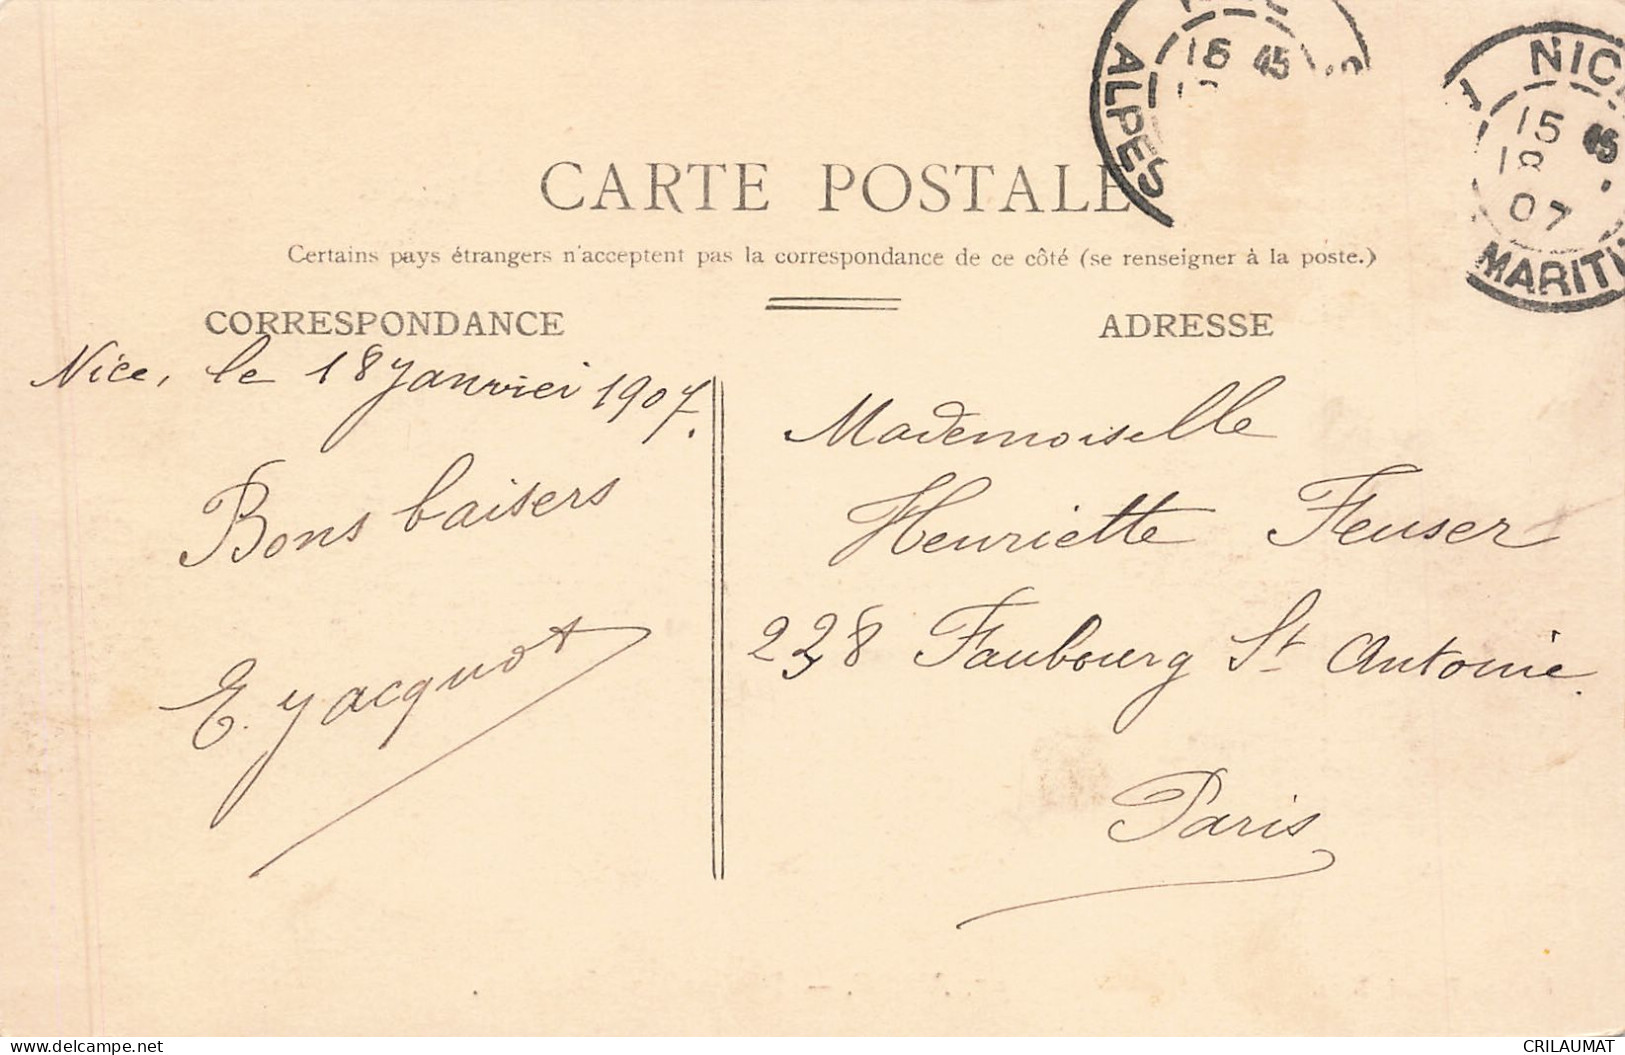 ALPES
15 45
NIC
15 45
18
07
MARITI
CARTE POSTALE
Certains pays étrangers n'acceptent pas la correspondance de ce côté (se renseigner à la poste.)
CORRESPONDANCE
Nice, le 18 Janvier 1907.
Bons baisers
E. Jacquot
ADRESSE
Mademoiselle
Henriette Feuser
228 Faubourg St Antoine.
Paris
delcampe.net
CRILAUMAT